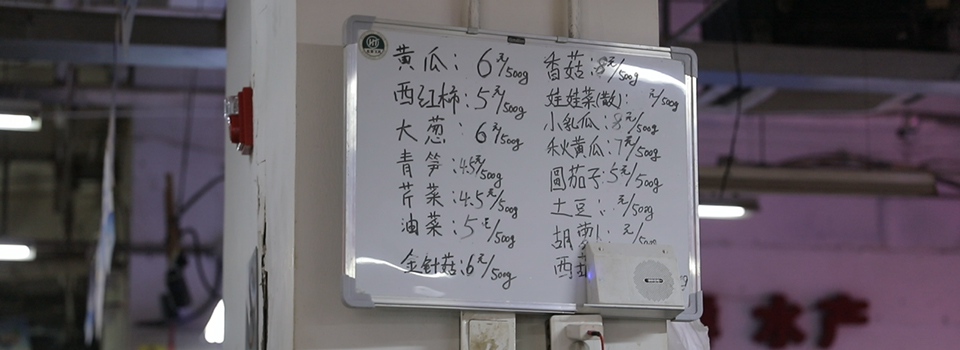 黄瓜：6元/500g
西红柿：5元/500g
大葱：6元/500g
青笋：4.5元/500g
芹菜：4.5元/500g
油菜：5元/500g
金针菇：6元/500g
香菇：8元/500g
娃娃菜(散)：元/500g
小乳瓜：8元/500g
秋黄瓜：7元/500g
圆茄子：5元/500g
土豆：元/500g
胡萝卜：元/500g
西
水产